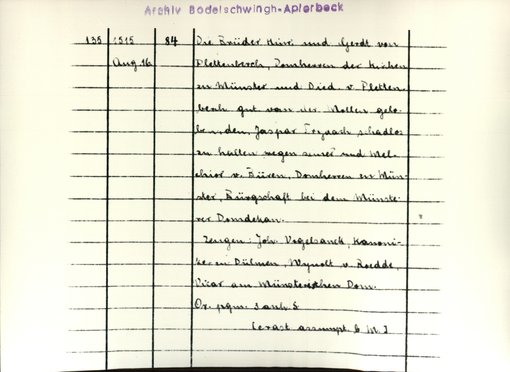 Archiv Bodelschwingh-Aplerbeck
135 1515 84 Die Brüder Hinr. und Gerdt von
Aug 16 Plettenberch, Domherren der Kirchen
zu Münster und Died. v. Pletten
berch gut van der Mollen gelo-
ben den, Jaspar Torck schadlos
zu halten wegen seiner und Mel-
chior v. Büren, Domherren zu Mün-
ster, Bürgschaft bei dem Münste-
rer Domdekan.
Zeugen: Joh. Vogelsanck, Kanoni-
ker zu Dülmen, Wynolt v. Roedde,
Vicar am Münsterschen Dom.
Or. pgm. 3 anh. S.
(crast. assumpt. b. M.)